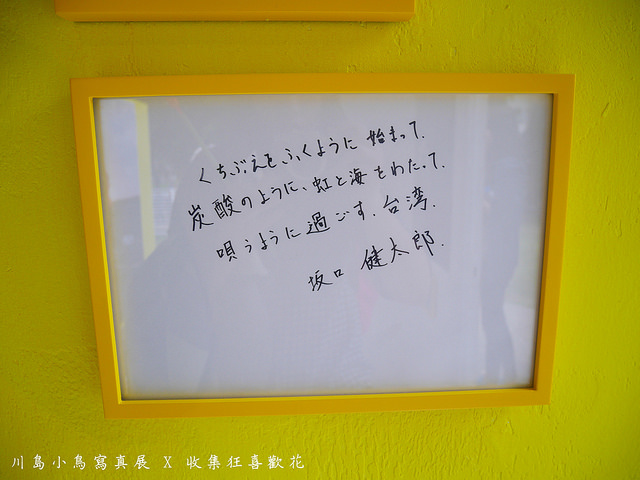 くちぶえをふくように 始まって.
炭酸のように、虹と海をわたって.
唄うように過ごす.台湾.
坂口 健太郎.
川島小鳥寫真展 X 收集狂喜歡花